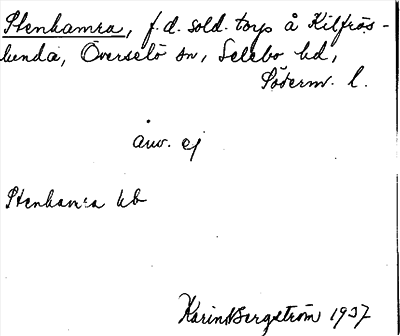 Stenhamra, f.d. sold. torp å Kilfrös-
lunda, Överselö sn, Selebo hd,
Söderm. l.
Anv. ej
Stenhamra kb
Karin Bergström 1937